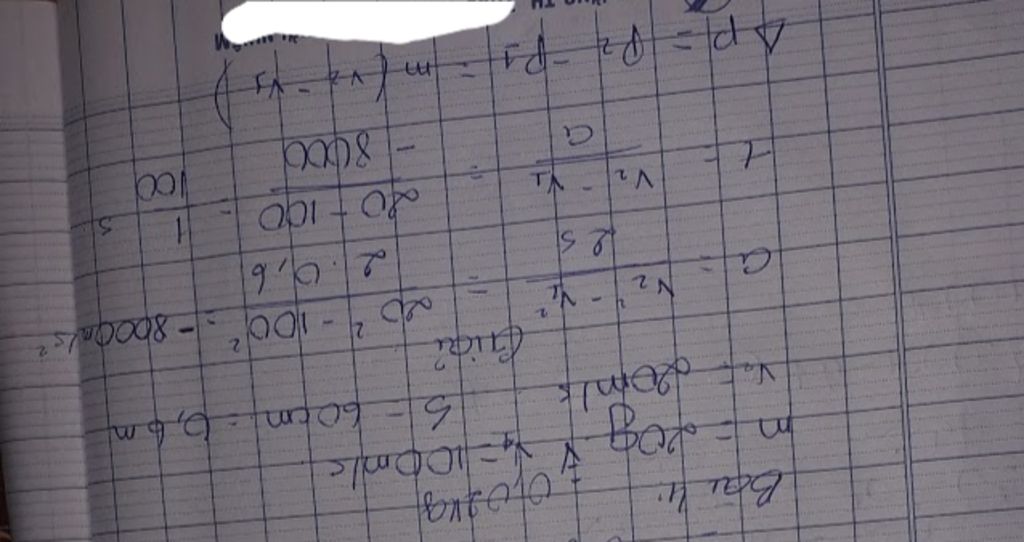 Bài 4:
m = 20g = 0,02kg
v₁ = 100m/s
v₂ = 20m/s S = 60cm = 0,6m
Giải
a = (v₂² - v₁²) / 2S = (20² - 100²) / (2 . 0,6) = -8000m/s²
t = (v₂ - v₁) / a = (20 - 100) / -8000 = 1/100 s
Δp = p₂ - p₁ = m(v₂ - v₁)